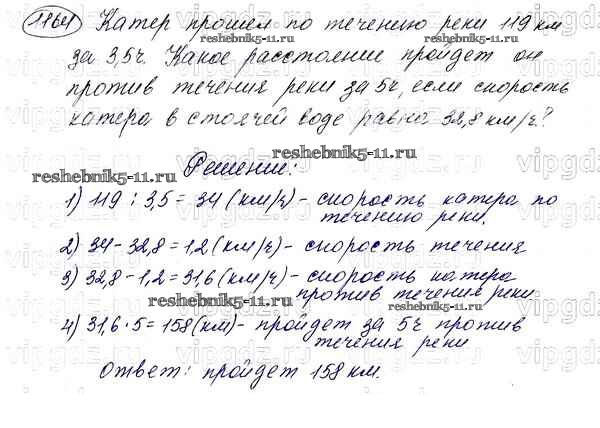 1164 Катер прошел по течению реки 119 км
reshebnik5-11.ru
за 3,5ч. Какое расстояние пройдет он
против течения реки за 5ч, если скорость
катера в стоячей воде равна 32,8 км/ч?
reshebnik5-11.ru
Решение:
reshebnik5-11.ru
1) 119 : 3,5 = 34 (км/ч) - скорость катера по
течению реки.
2) 34 - 32,8 = 1,2 (км/ч) - скорость течения
3) 32,8 - 1,2 = 31,6 (км/ч) - скорость катера
против течения реки
reshebnik5-11.ru
4) 31,6 · 5 = 158 (км) - пройдет за 5ч против
течения реки
Ответ: пройдет 158 км.
vipgdz.ru